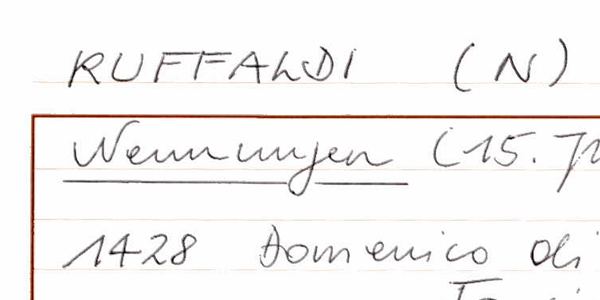 RUFFALDI (N)
Nennungen (15. Jh
1428 Domenico di